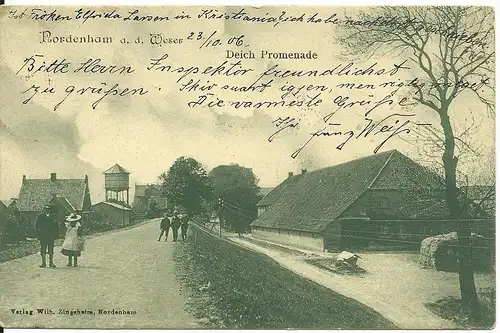 Fröken Elfrida Larsen in Kristiania ich habe
Nordenham a. d. Weser 23/10. 06.
Deich Promenade
Bitte Herrn Inspektor freundlichst
zu grüßen. Skiv svart igjen, men rigtig meget
Die wärmste Grüße
Ihr Franz Weiß
Verlag Wilh. Zingsheim, Nordenham